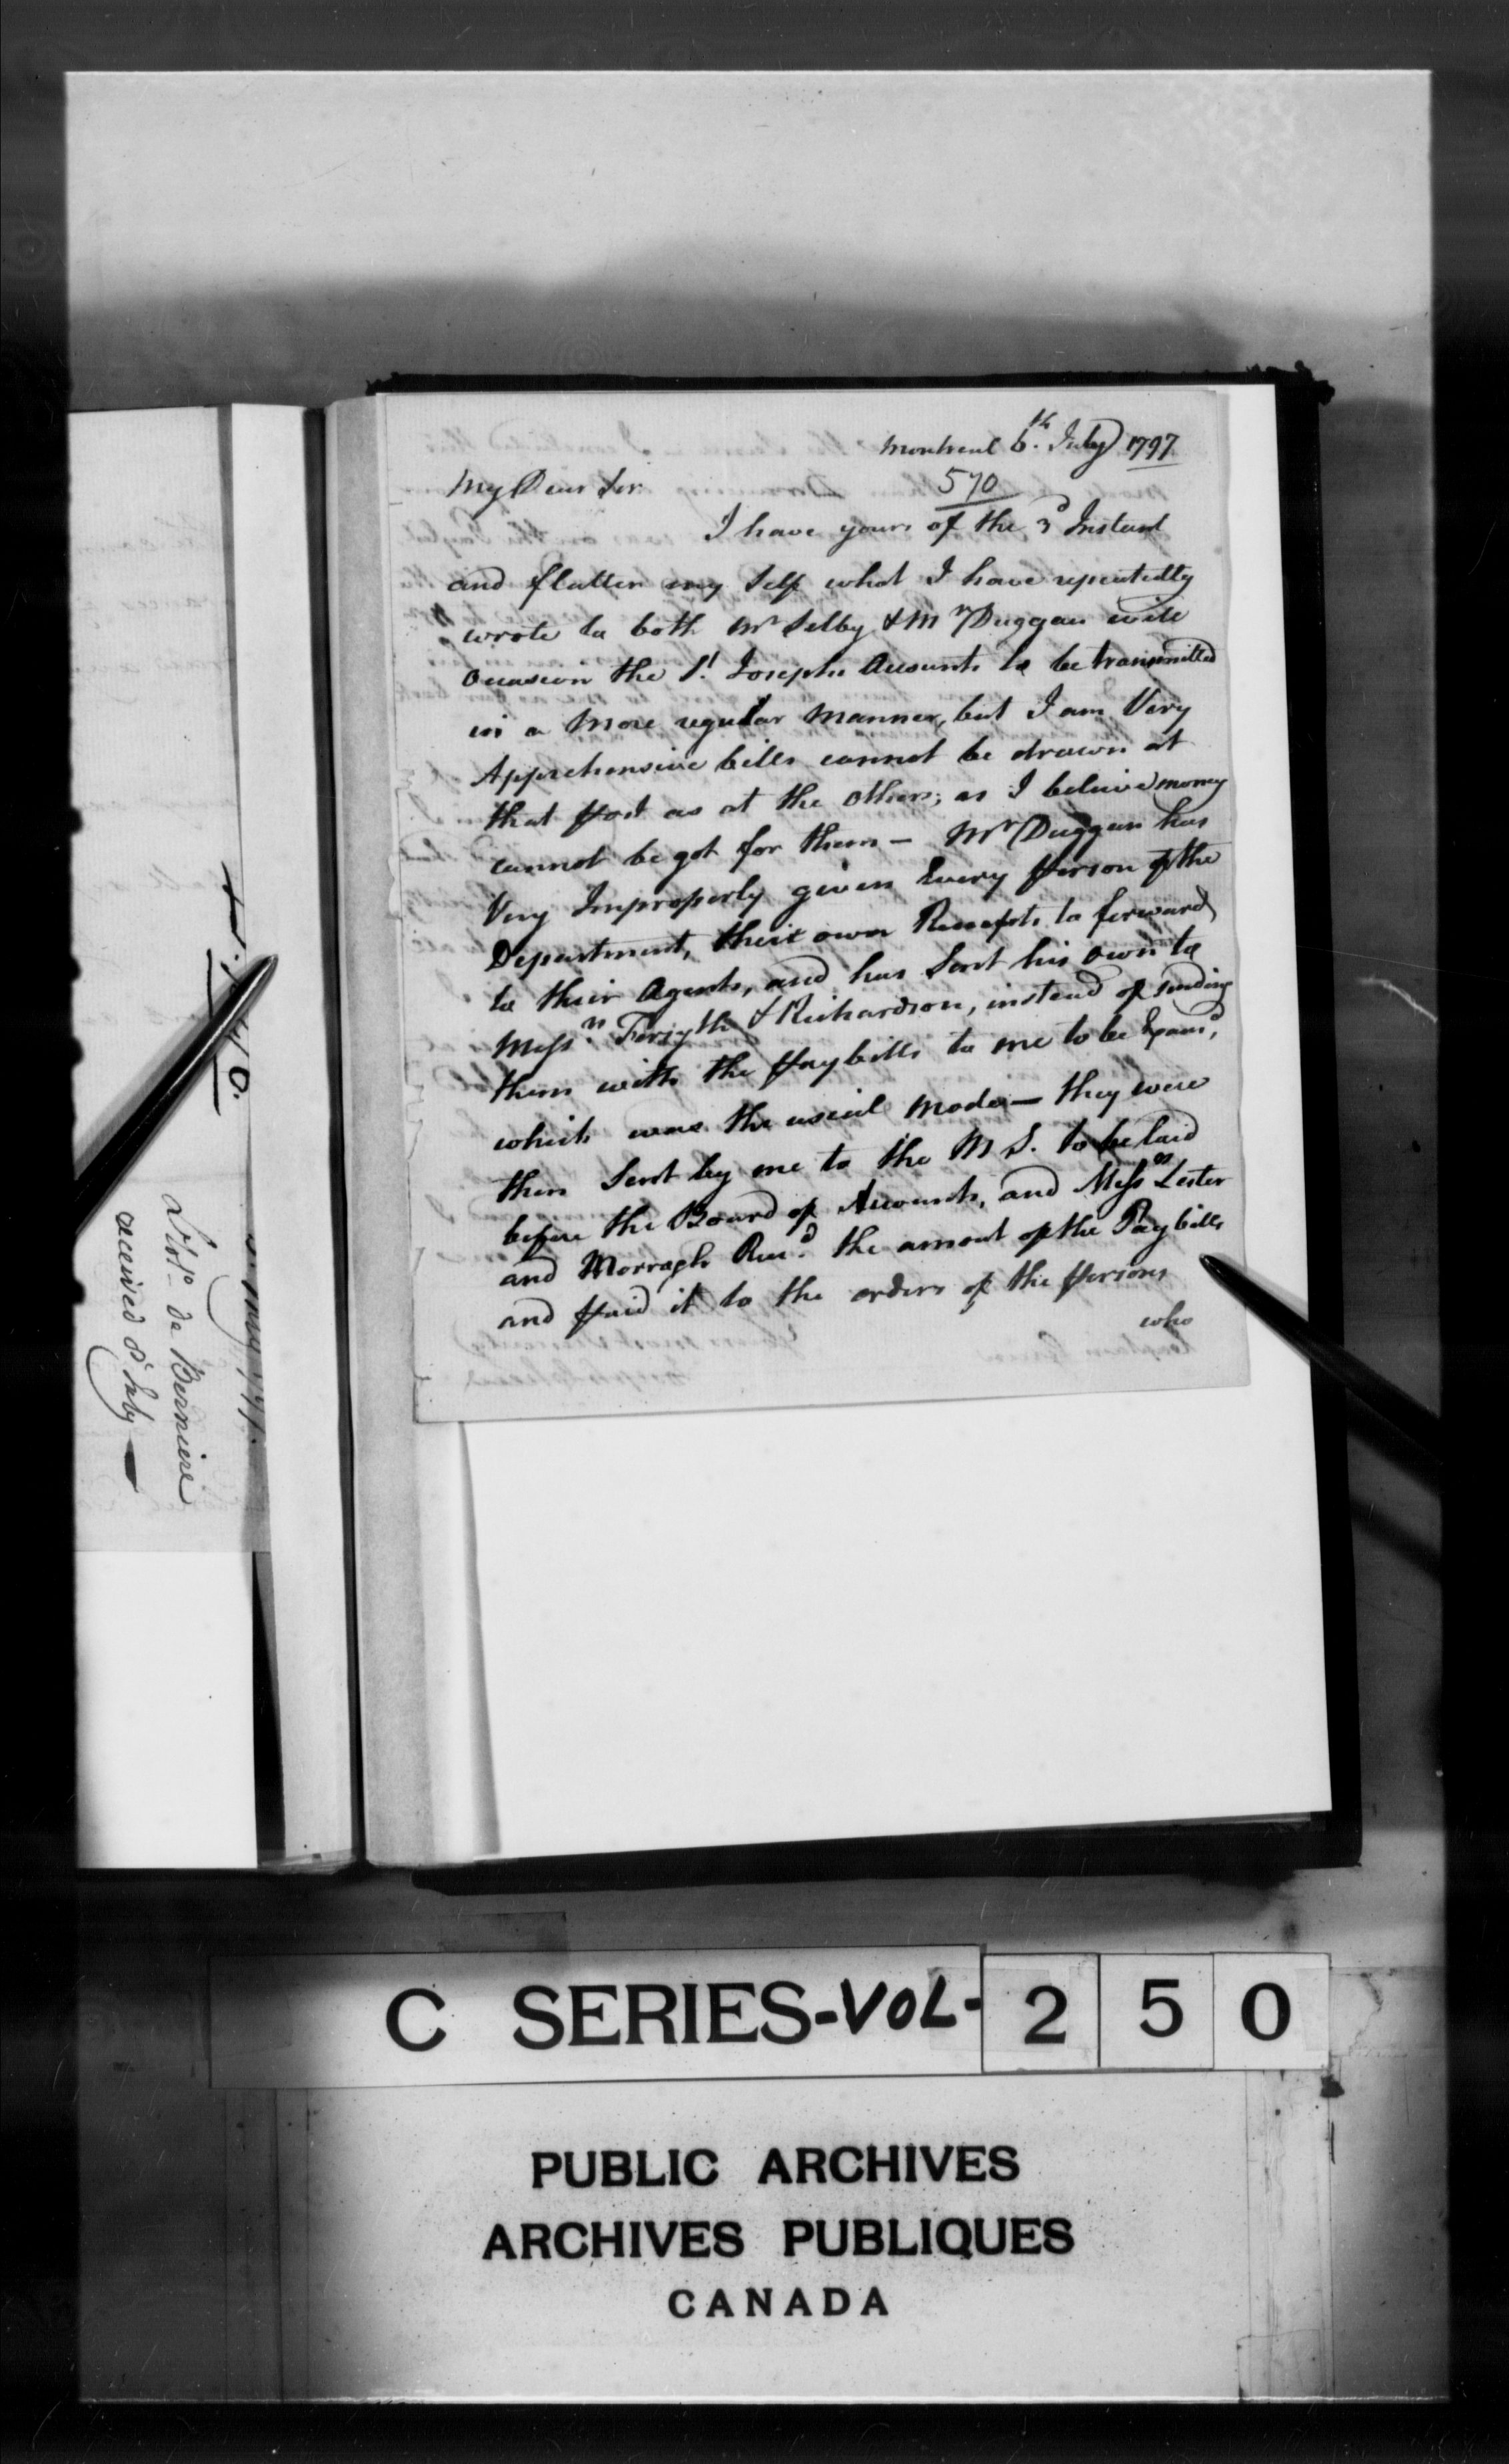 Montreal 6.th July 1797
570
My Dear Sir
I have yours of the 3d Instant
and flatter my Self what I have repeatedly
wrote to both Mr Selby & Mr Duggan will
occasion the St Josephs Accounts to be transmitted
in a more regular manner, but I am Very
Apprehensive bills cannot be drawn at
that Post as at the others; as I believe money
cannot be got for them — Mr Duggan has
Very Improperly given Every Person of the
Department, their own Receipts to forward
to their Agents, and has Sent his own to
Messrs Forsythe & Richardson, instead of sending
them with the Paybills to me to be Examd,
which was the usual mode — they were
then Sent by me to the M S. to be laid
before the Board of Accounts, and Messrs Lester
and Morrogh Recd the amount of the Paybills
and Paid it to the orders of the Persons
who
de Berniere
received 8 July —
C SERIES-VOL-250
PUBLIC ARCHIVES
ARCHIVES PUBLIQUES
CANADA